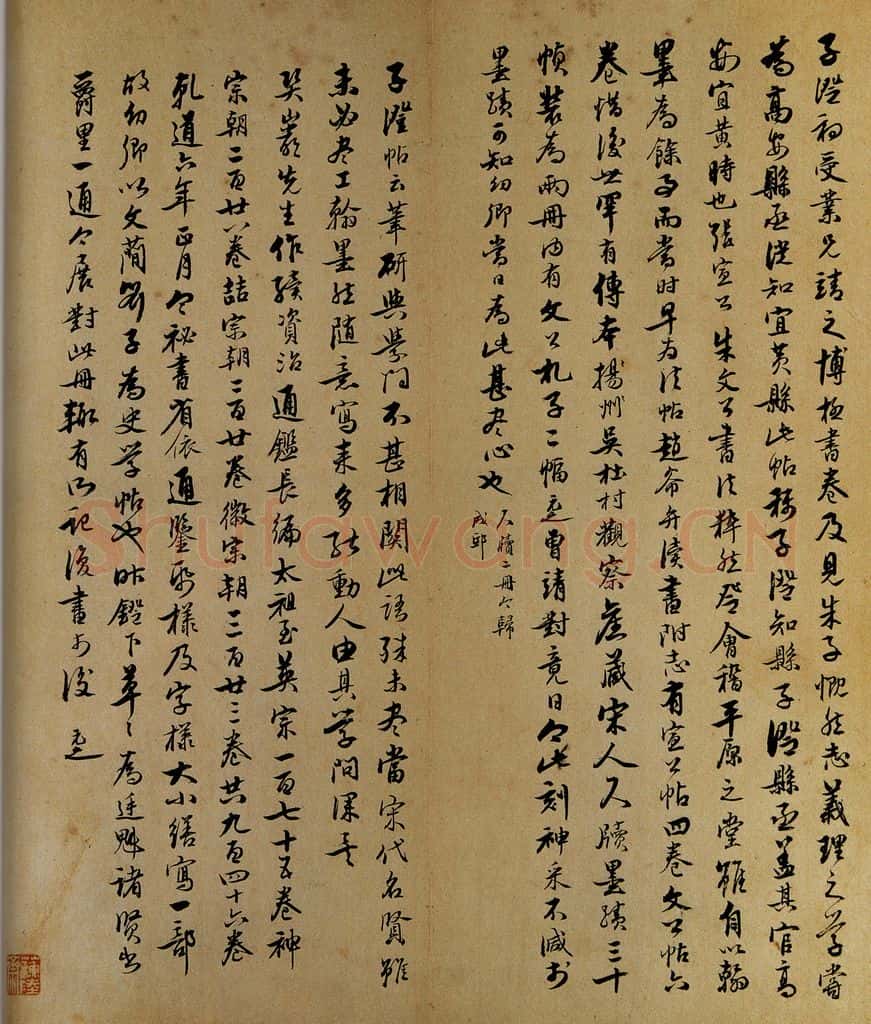 子澄初受業兄靖之博極書卷及見朱子慨然志義理之學嘗
為高安縣丞從知宜黃縣此帖稱子澄知縣子澄縣丞蓋其官高
安宜黃時也張宣公朱文公書法粹然登會稽平原之堂雖自以翰
墨為餘事而當時早為法帖趙希弁讀書附志有宣公帖四卷文公帖六
卷惜後世罕有傳本揚州吳杜村觀察舊藏宋人尺牘墨蹟三十
幀裝為兩冊內有文公札子二幅 曾請對竟日今此刻神采不減於
墨蹟可知幼卿當日為此甚盡心也
尺牘二冊今歸
成邸
子澄帖云筆研與學問不甚相關此語殊未盡當宋代名賢雖
未必盡工翰墨然隨意寫來多能動人由其學問深耳
巽巖先生作續資治通鑑長編太祖至英宗一百七十五卷神
宗朝二百廿八卷喆宗朝二百廿卷徽宗朝三百廿三卷共九百四十六卷
乾道六年正月令祕書省依通鑒紙樣及字樣大小繕寫一部
故幼卿以文簡箚子為史學帖也昨鐙下草草為廷魁諸賢書
爵里一通今展對此冊輒有所記復書於後
Shufawang.CN